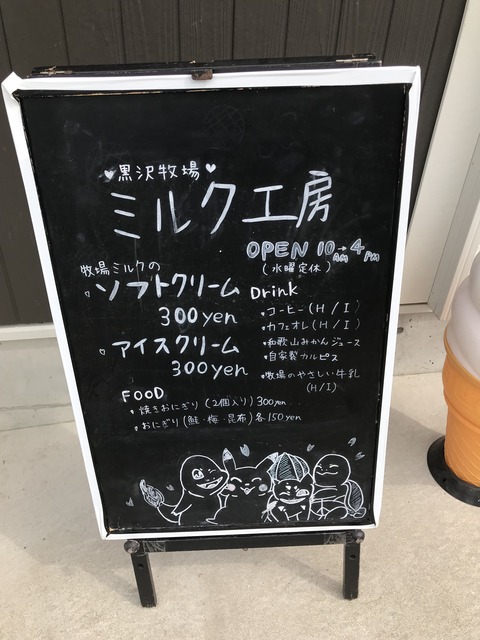 ♥黒沢牧場♥
ミルク工房
OPEN 10AM→4PM
(水曜定休)
牧場ミルクの
♡ソフトクリーム
300yen
♡アイスクリーム
300yen
Drink
・コーヒー(H/I)
・カフェオレ(H/I)
・和歌山みかんジュース
・自家製カルピス
・牧場のやさしい牛乳
(H/I)
FOOD
・焼きおにぎり(2個入り)300yen
・おにぎり(鮭・梅・昆布)各150yen